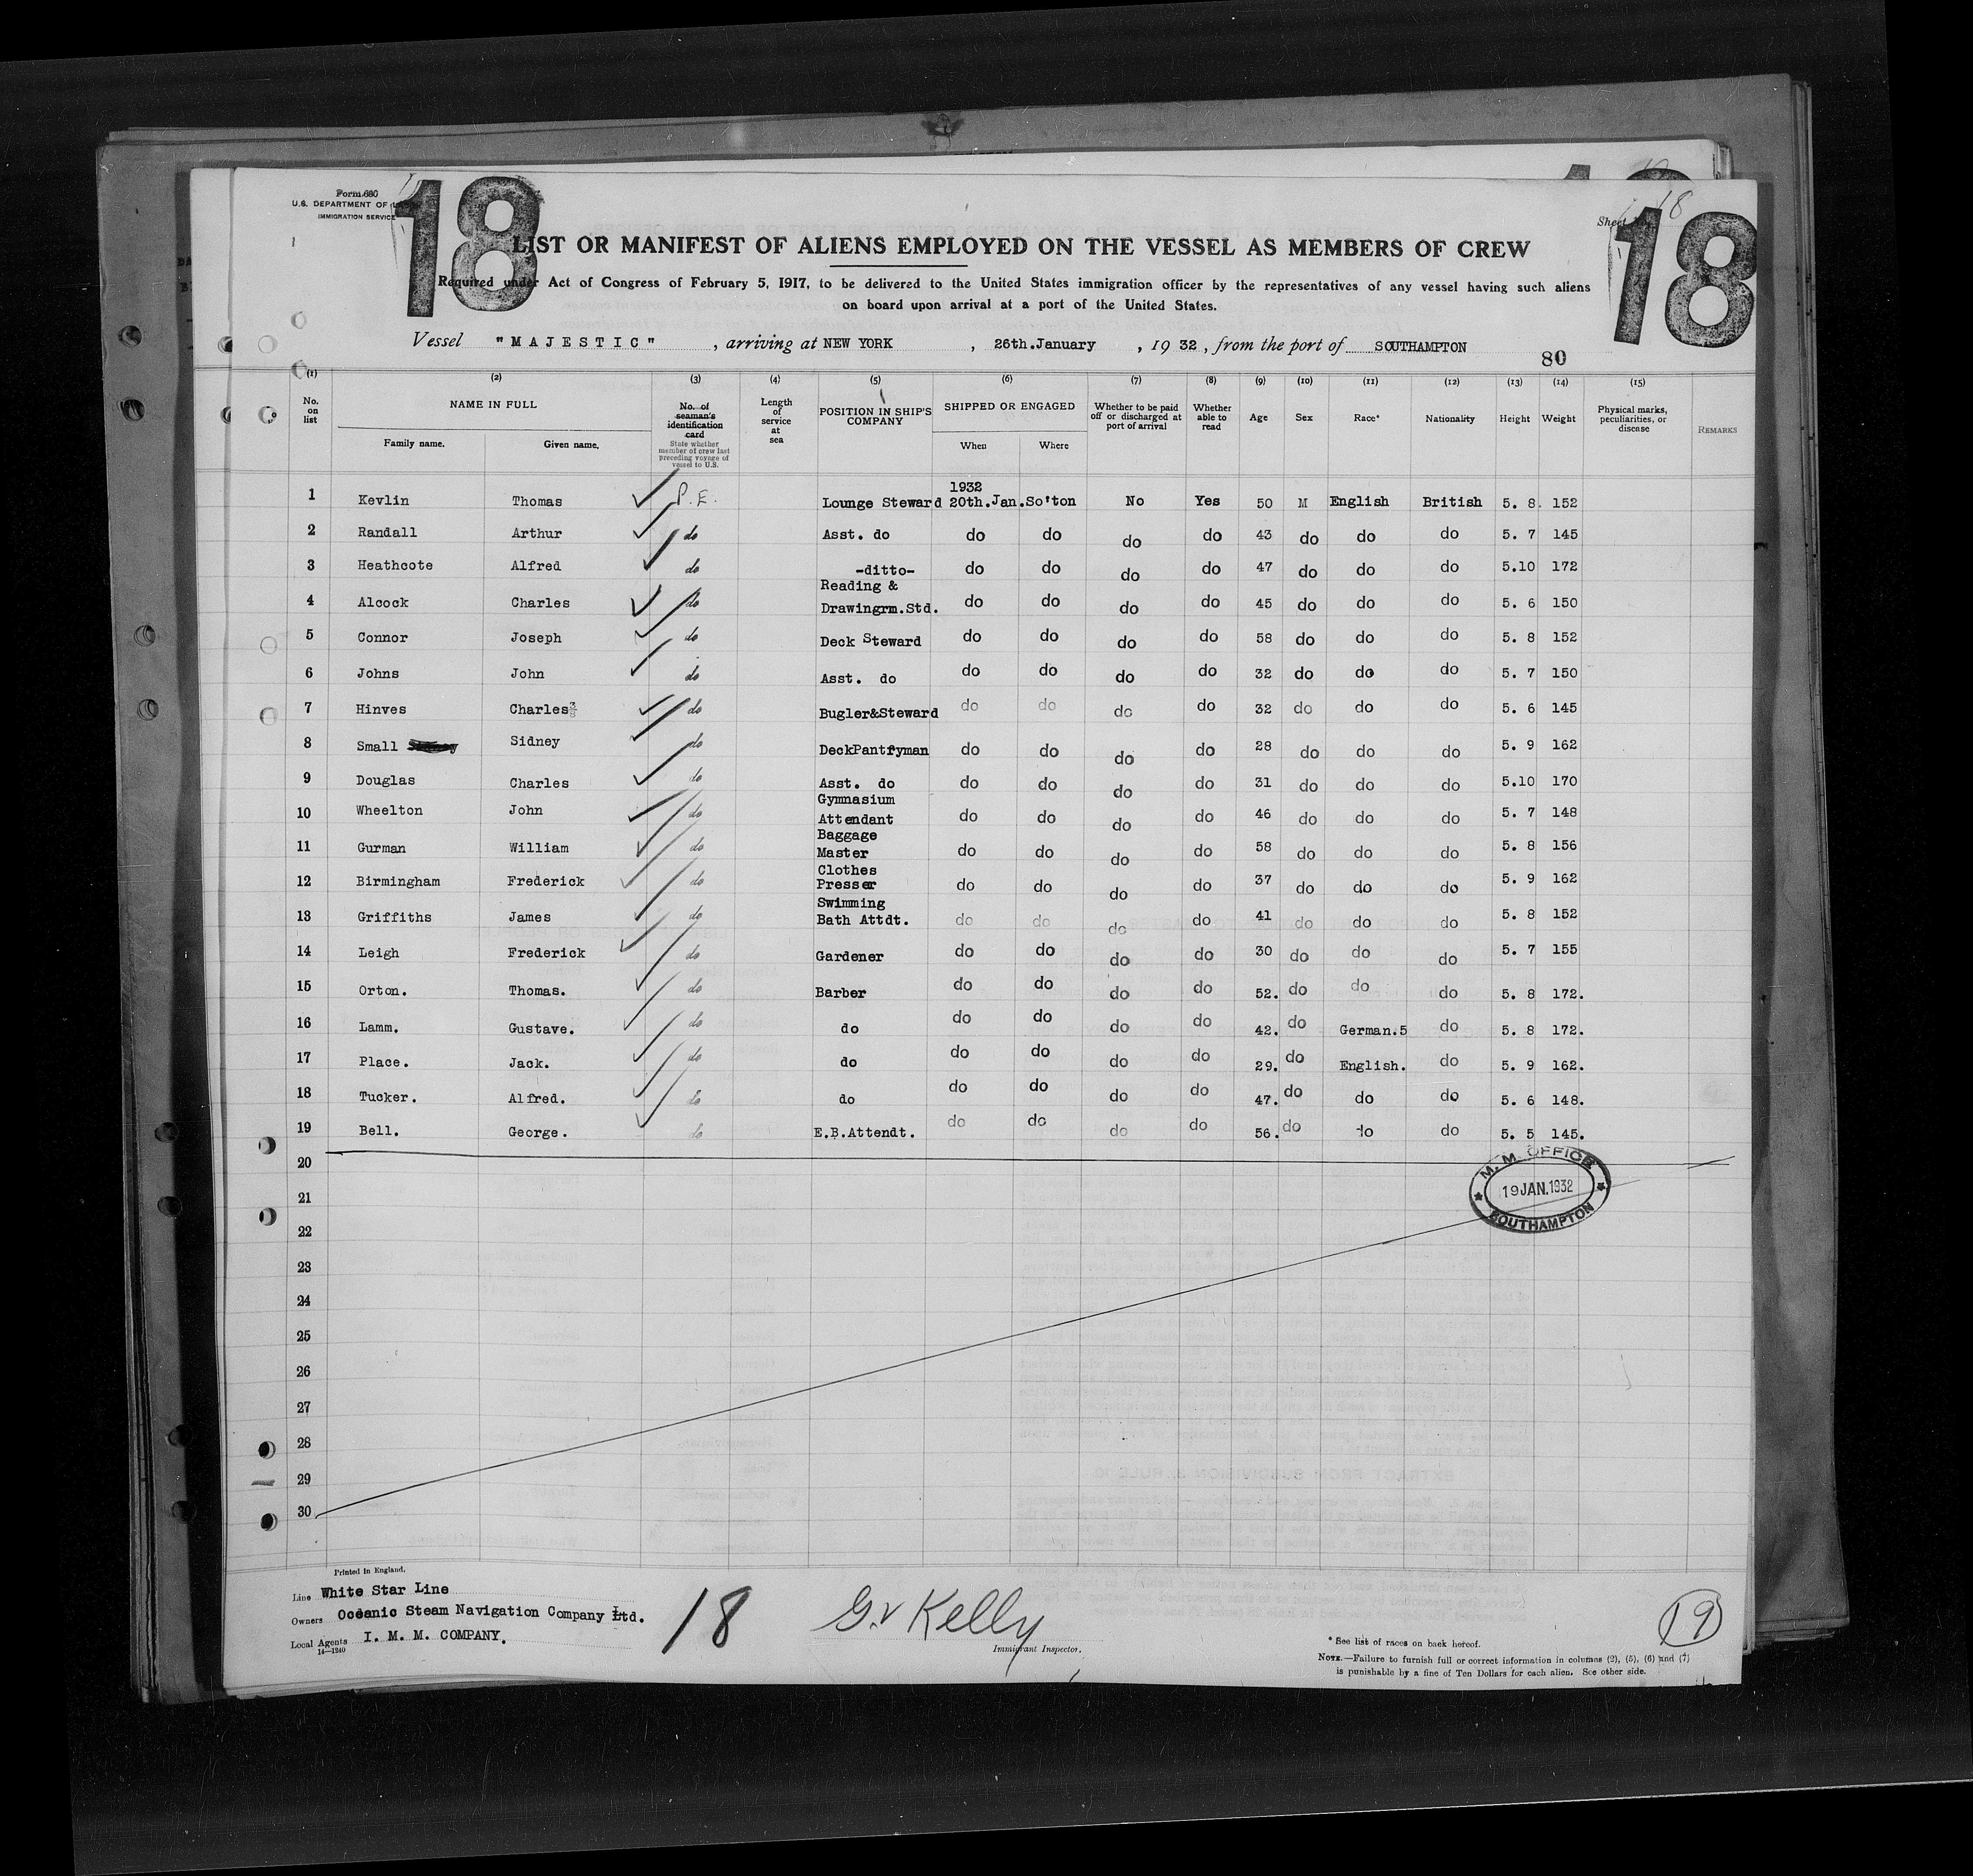 Form 680
U.S. DEPARTMENT OF
IMMIGRATION SERVICE
18
18
Sheet
18
LIST OR MANIFEST OF ALIENS EMPLOYED ON THE VESSEL AS MEMBERS OF CREW
Required under Act of Congress of February 5, 1917, to be delivered to the United States immigration officer by the representatives of any vessel having such aliens
on board upon arrival at a port of the United States.
Vessel "MAJESTIC", arriving at NEW YORK, 26th.January, 1932, from the port of SOUTHAMPTON
80
(1) (2) (3) (4) (5) (6) (7) (8) (9) (10) (11) (12) (13) (14) (15)
No. on list NAME IN FULL Family name. Given name. No. of seaman's identification card State whether member of crew last preceding voyage of vessel to U.S. Length of service at sea POSITION IN SHIP'S COMPANY SHIPPED OR ENGAGED When Where Whether to be paid off or discharged at port of arrival Whether able to read Age Sex Race* Nationality Height Weight Physical marks, peculiarities, or disease REMARKS
1 Kevlin Thomas P.E. Lounge Steward 1932 20th.Jan. So'ton No Yes 50 M English British 5. 8. 152
2 Randall Arthur do Asst. do do do do do 43 do do do 5. 7 145
3 Heathcote Alfred do -ditto- do do do do 47 do do do 5.10 172
4 Alcock Charles do Reading & Drawingrm.Std. do do do do 45 do do do 5. 6 150
5 Connor Joseph do Deck Steward do do do do 58 do do do 5. 8 152
6 Johns John do Asst. do do do do do 32 do do do 5. 7 150
7 Hinves Charles do Bugler&Steward do do do do 32 do do do 5. 6 145
8 Small Sidney do DeckPantryman do do do do 28 do do do 5. 9 162
9 Douglas Charles do Asst. do do do do do 31 do do do 5.10 170
10 Wheelton John do Gymnasium Attendant do do do do 46 do do do 5. 7 148
11 Gurman William do Baggage Master do do do do 58 do do do 5. 8 156
12 Birmingham Frederick do Clothes Presser do do do do 37 do do do 5. 9 162
13 Griffiths James do Swimming Bath Attdt. do do do do 41 do do do 5. 8 152
14 Leigh Frederick do Gardener do do do do 30 do do do 5. 7 155
15 Orton. Thomas. do Barber do do do do 52. do do do 5. 8 172.
16 Lamm. Gustave. do do do do do do 42. do German.5 do 5. 8 172.
17 Place. Jack. do do do do do do 29. do English. do 5. 9 162.
18 Tucker. Alfred. do do do do do do 47. do do do 5. 6 148.
19 Bell. George. do E.B.Attendt. do do do do 56. do do do 5. 5 145.
20
21
22
23
24
25
26
27
28
29
30
M. M. OFFICE
19 JAN. 1932
SOUTHAMPTON
Printed in England.
Line White Star Line
Owners Oceanic Steam Navigation Company Ltd.
Local Agents I. M. M. COMPANY.
14—1240
18
G. V Kelly
Immigrant Inspector.
19
* See list of races on back hereof.
NOTE.—Failure to furnish full or correct information in columns (2), (5), (6) and (7)
is punishable by a fine of Ten Dollars for each alien. See other side.